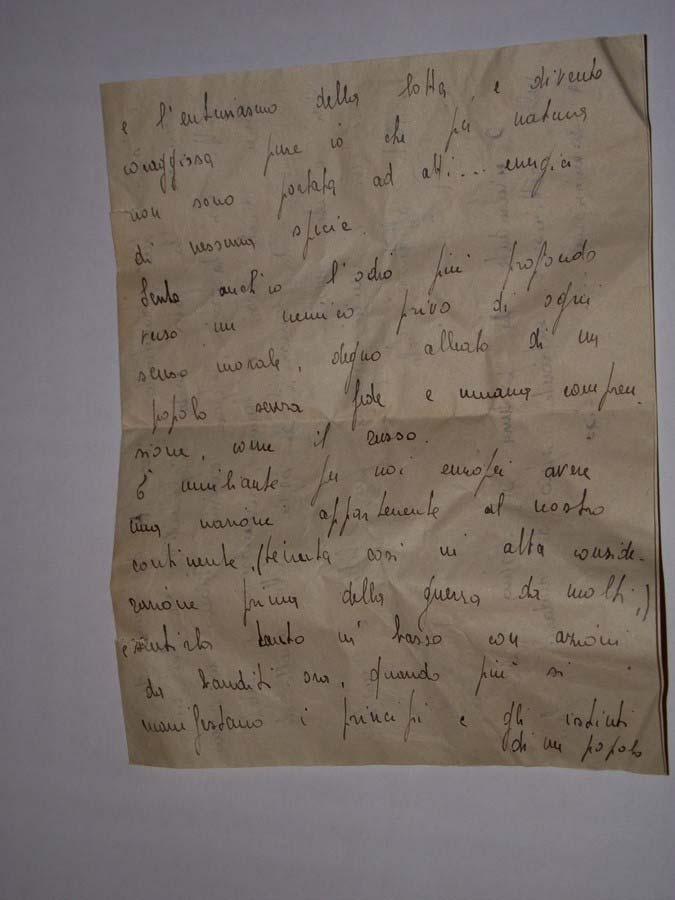 e l'entusiasmo della lotta e divento
coraggiosa pure io che per natura
non sono portata ad atti... energici
di nessuna specie.
Sento anch'io l'odio più profondo
verso un nemico privo di ogni
senso morale, degno alleato di un
popolo senza fede e umana compren
sione, come il russo.
È umiliante per noi europei avere
una nazione appartenente al nostro
continente, (tenuta così in alta conside-
razione prima della guerra da molti,)
e sentirla tanto in basso con azioni
da banditi ora, quando più si
manifestano i principi e gli istinti
di un popolo